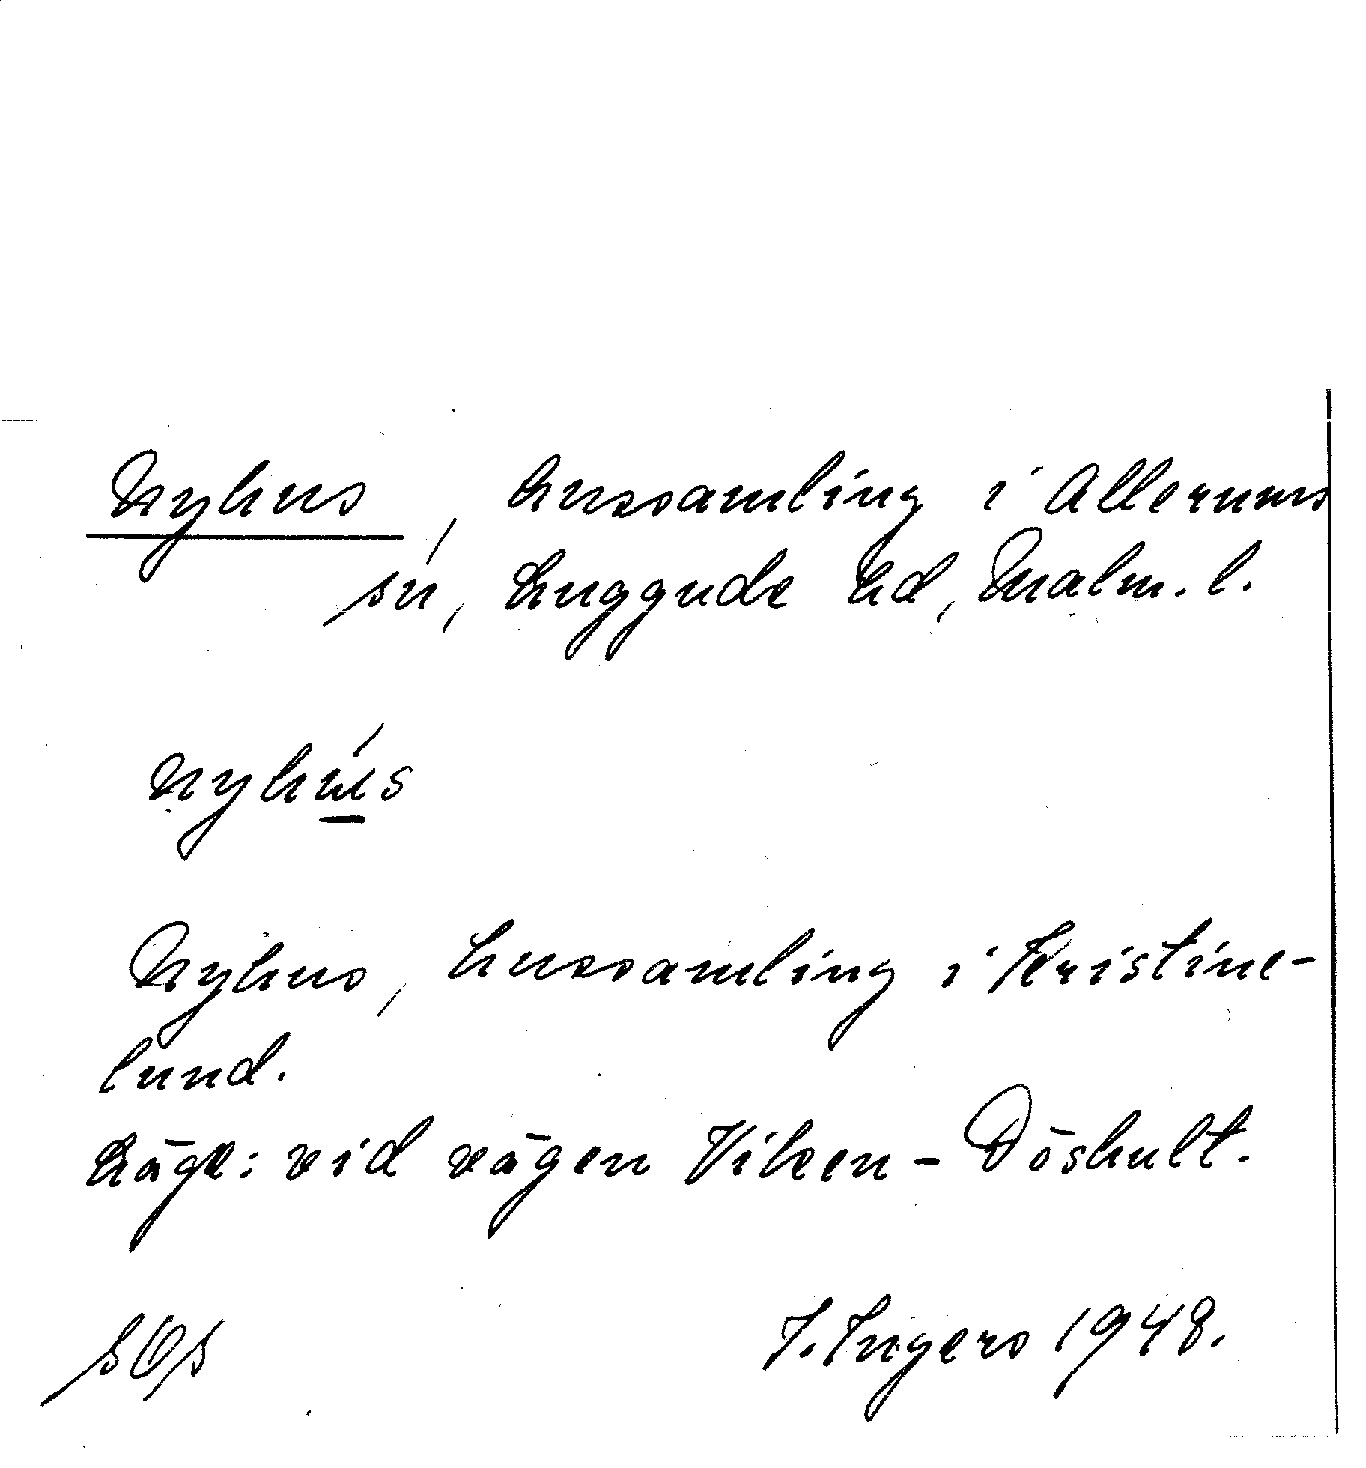 Nyhus, hussamling i Allerums
sn, Luggude hd, Malm. l.
nyhús
Nyhus, hussamling i Kristine-
lund.
Läge: vid vägen Viken - Döshult.
I. Ingers 1948.